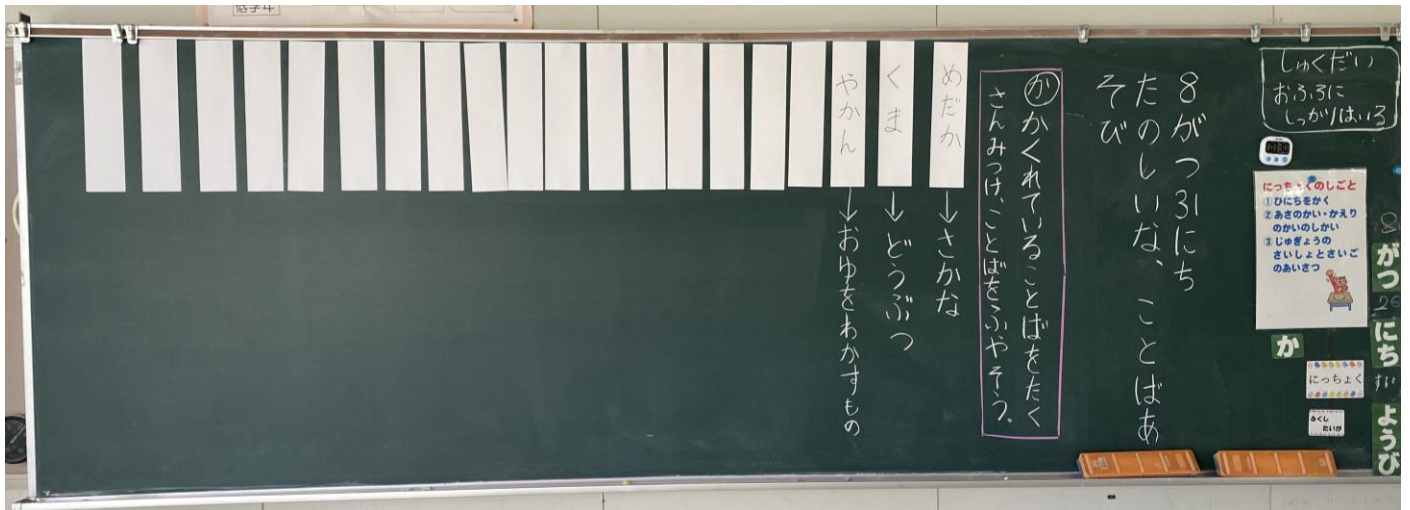 低学年
しゅくだい
おふろに
しっかりはいる
にっちょくのしごと
①ひにちをかく
②あさのかい・かえり
のかいのしかい
③じゅぎょうの
さいしょとさいご
のあいさつ
8
がつ
26
にち
すい
ようび
か
にっちょく
ふくし
たいが
8がつ31にち
たのしいな、ことばあ
そび
かかくれていることばをたく
さんみつけ、ことばをふやそう。
めだか→さかな
くま→どうぶつ
やかん→おゆをわかすもの